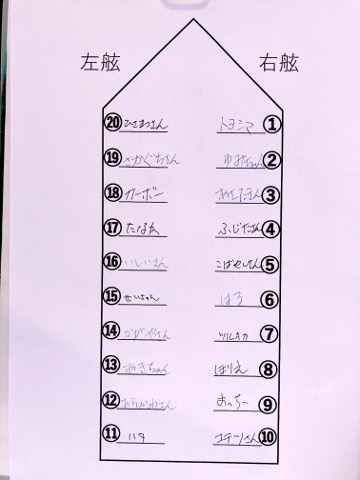 左舷 右舷
⑳ ひさまつさん トヨシマ ①
⑲ さかぐちさん ゆみちゃん ②
⑱ カーボー ③
⑰ たなか ふじたさん ④
⑯ いしいさん こばやしさん ⑤
⑮ せいちゃん はる ⑥
⑭ かがやさん ツルオカ ⑦
⑬ あきちゃん ほりえ ⑧
⑫ まっちー ⑨
⑪ コテツさん ⑩